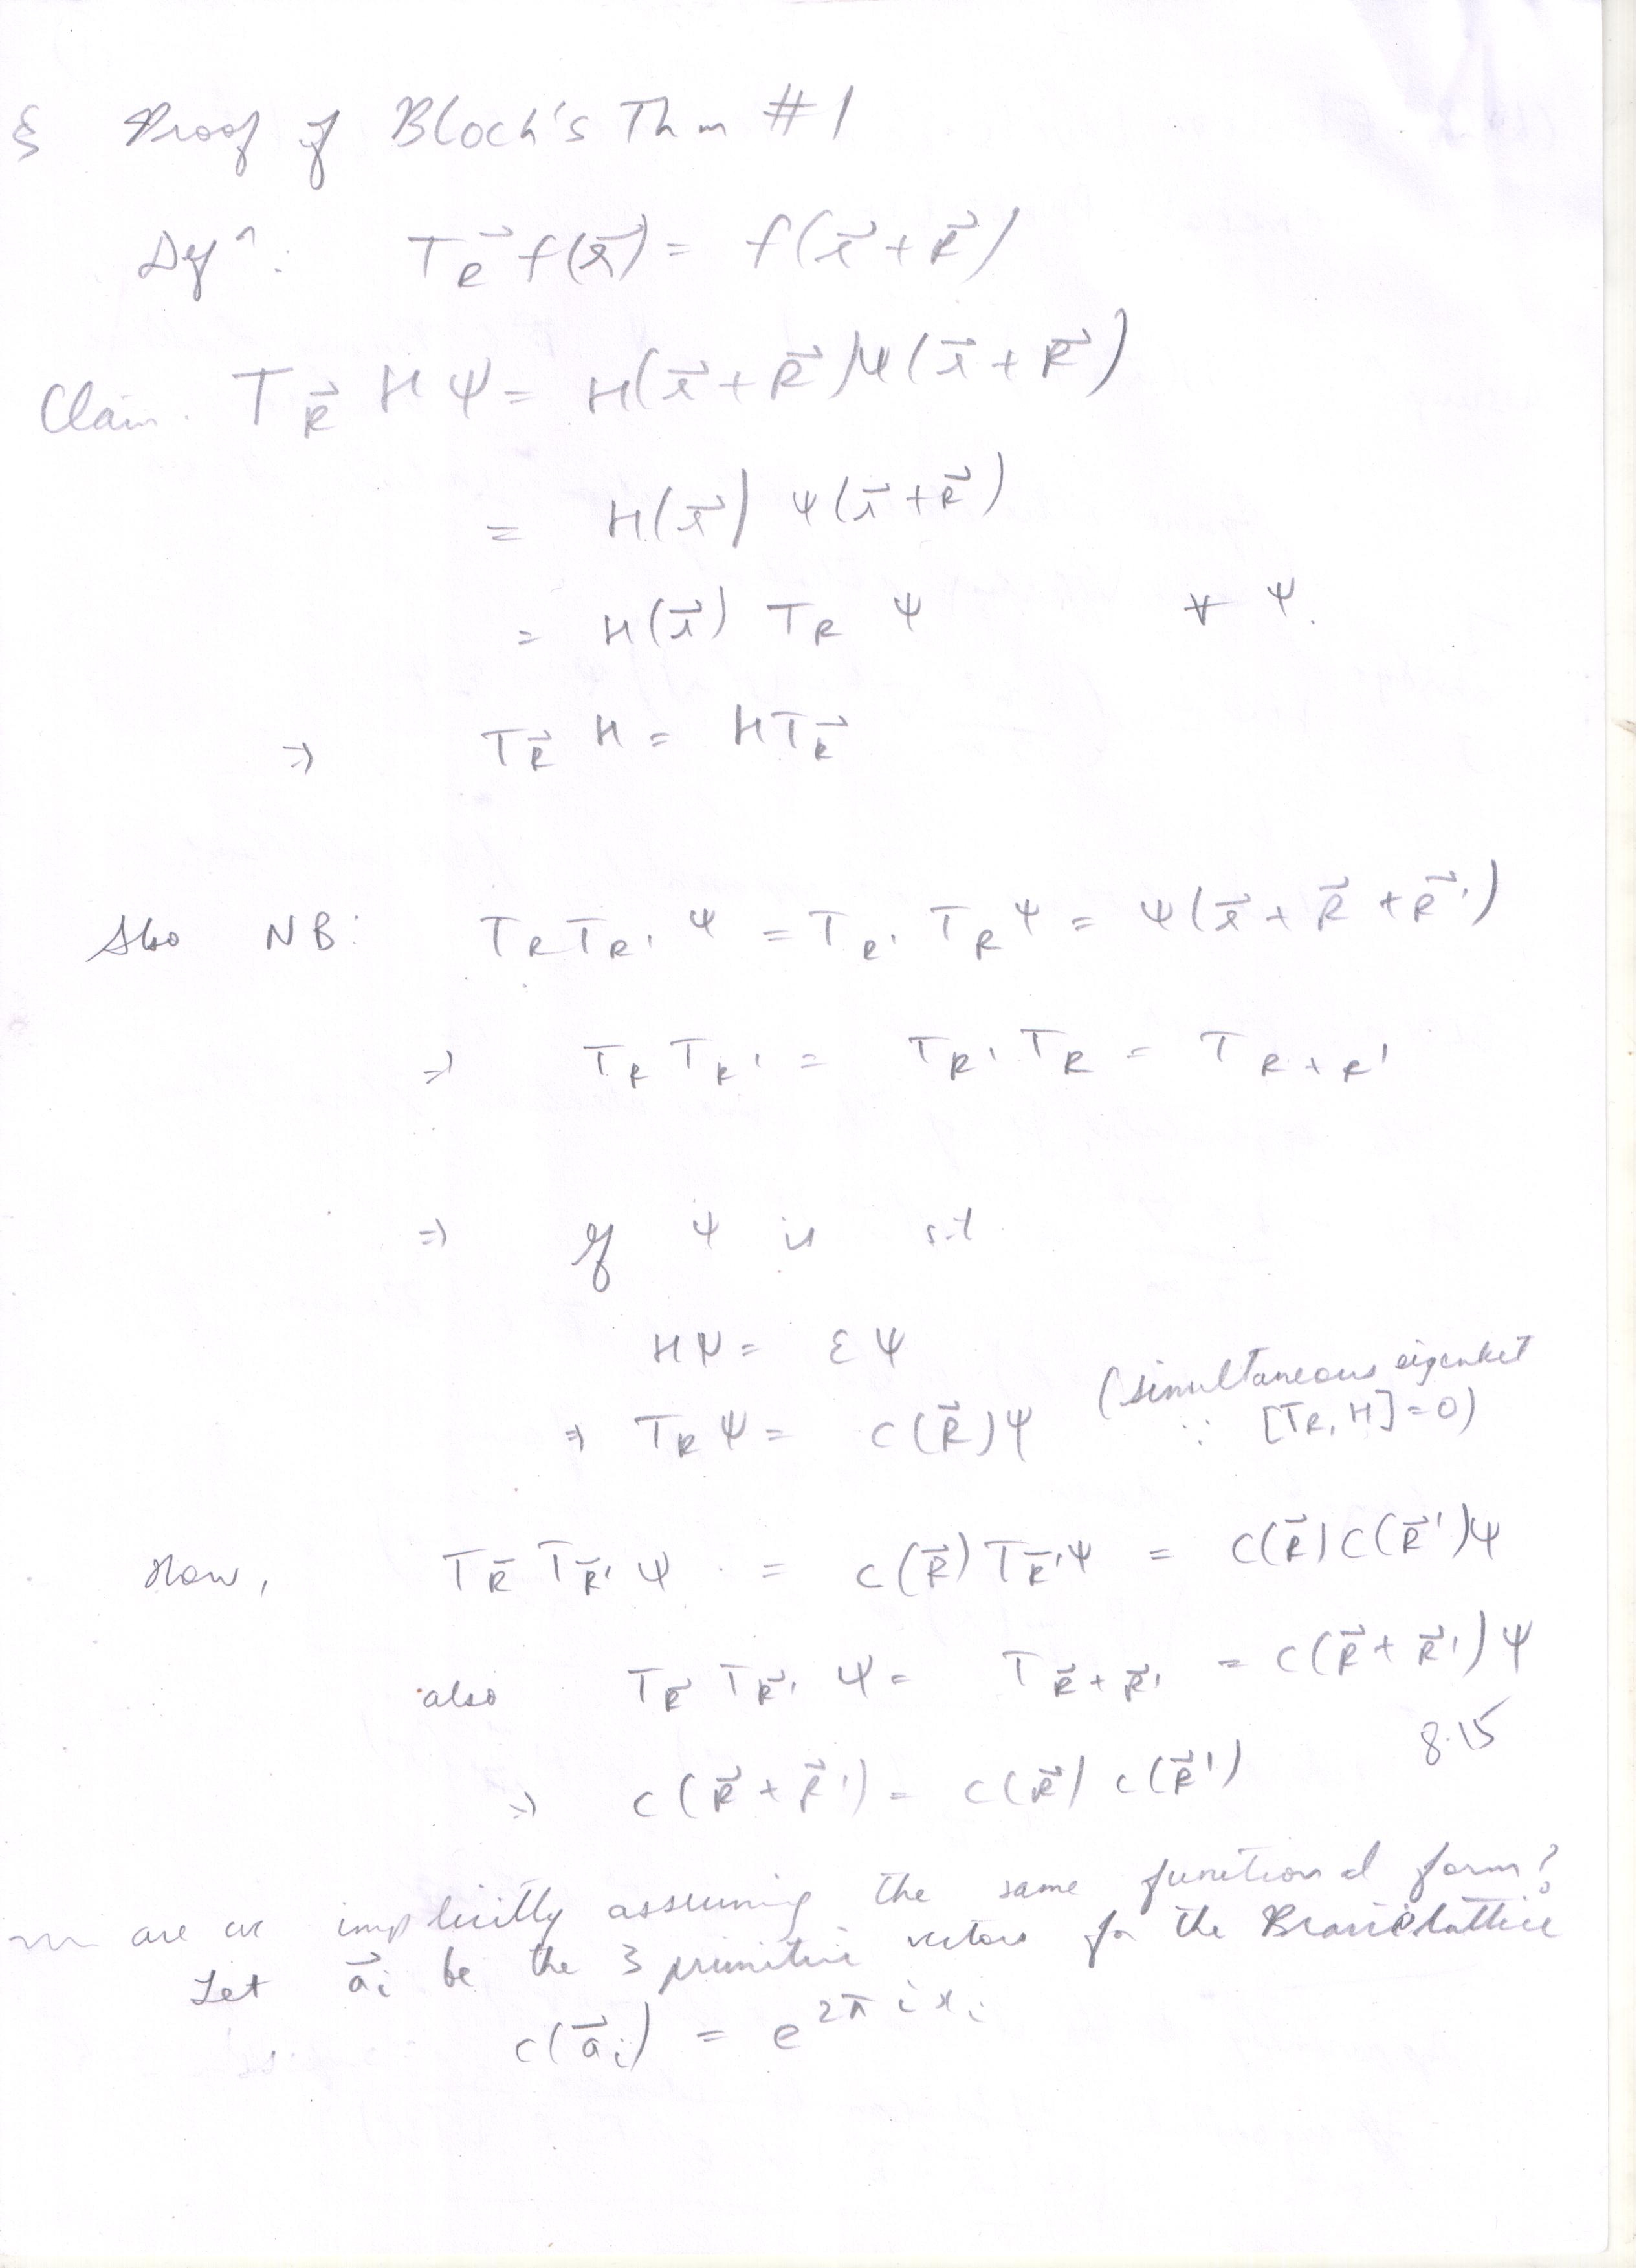 § Proof of Bloch's Thm #1
Defⁿ: T_R⃗ f(r⃗) = f(r⃗ + R⃗)
Claim. T_R⃗ H Ψ = H(r⃗ + R⃗) Ψ(r⃗ + R⃗)
= H(r⃗) Ψ(r⃗ + R⃗)
= H(r⃗) T_R Ψ ∀ Ψ.
⇒ T_R⃗ H = H T_R⃗
Also NB: T_R T_R' Ψ = T_R' T_R Ψ = Ψ(r⃗ + R⃗ + R⃗')
⇒ T_R T_R' = T_R' T_R = T_R+R'
⇒ If Ψ is s.t
HΨ = εΨ
(simultaneous eigenket
⇒ T_R Ψ = c(R⃗)Ψ ∵ [T_R, H] = 0)
Now, T_R⃗ T_R⃗' Ψ = c(R⃗) T_R⃗' Ψ = c(R⃗) c(R⃗')Ψ
also T_R⃗ T_R⃗' Ψ = T_R⃗+R⃗' = c(R⃗ + R⃗')Ψ
8.15
⇒ c(R⃗ + R⃗') = c(R⃗) c(R⃗')
are we implicitly assuming the same functional form?
Let a⃗ᵢ be the 3 primitive vectors for the Bravais lattice
c(a⃗ᵢ) = e^{2πi xᵢ}